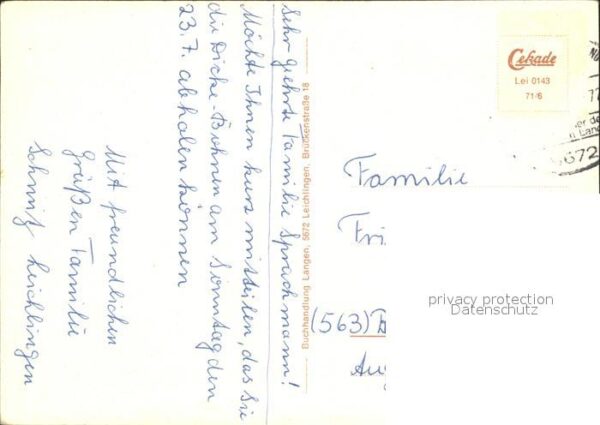 Sehr geehrte Familie Spruchmann!
Möchte Ihnen kurz mitteilen, das Sie
die Dicke-Bohnen am Sonntag den
23.7. abholen können
Mit freundlichen
Grüßen Familie
Schmitz Leichlingen
Buchhandlung Langen, 5672 Leichlingen, Brückenstraße 18
Cekade
Lei 0143
71/6
5672
Familie
Fri
(563)
privacy protection
Datenschutz